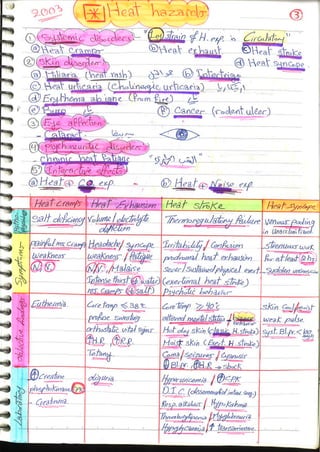 2003
* Heat hazards
3
① Systemic disorders Let strain of H. exp. in Circulatory
ⓐ Heat cramps ⓑ Heat exhaust ⓒ Heat stroke
② Skin disorders ⓓ Heat syncope
ⓐ Miliaria (heat rash) ⓑ Intertrigo
ⓒ Heat urticaria (Cholinergic urticaria)
ⓓ Erythema ab igne (From Fire)
ⓔ Burn ⓕ Cancer (rodent ulcer)
③ Eye affection
Cataract
④ Psychoneurotic disorders
Chronic heat fatigue
⑤ Interactive effects
ⓐ Heat + Co exp. ⓑ Heat + Noise exp
Heat cramps Heat Exhaustion Heat stroke Heat Syncope
Salt deficiency Volume / electrolyte Thermoregulatory Failure Venous pooling
depletion
Symptoms
Painful ms Cramps Headache / syncope Irritability / Confusion Strenuous work
weakness weakness / Fatigue prodromal heat exhaustion For at least 2 hs
N/V N/V / Malaise sever / sustained physical exert. Sudden
Intense thirst (water) (exertional heat stroke)
ms cramps (salt) Psychotic behavior
Euthermia Core Temp ≤ 38c Core Temp > 40c skin Cool / moist
profuse sweating altered mental states weak pulse
orthostatic vital signs Hot dry skin (classic H. stroke) syst. Bl.pr. <
Moist skin (Exert. H. stroke)
Tetany Coma / Seizures
shock
Laboratory
Creatine oliguria Hyperuricemia / ↑CPK
phosphokinase D.I.C (disseminated intrav. coag)
Creatinine Resp. alkalosis / Hypokalemia
Thrombocytopenia
Hypoglycemia / ↑ transaminase